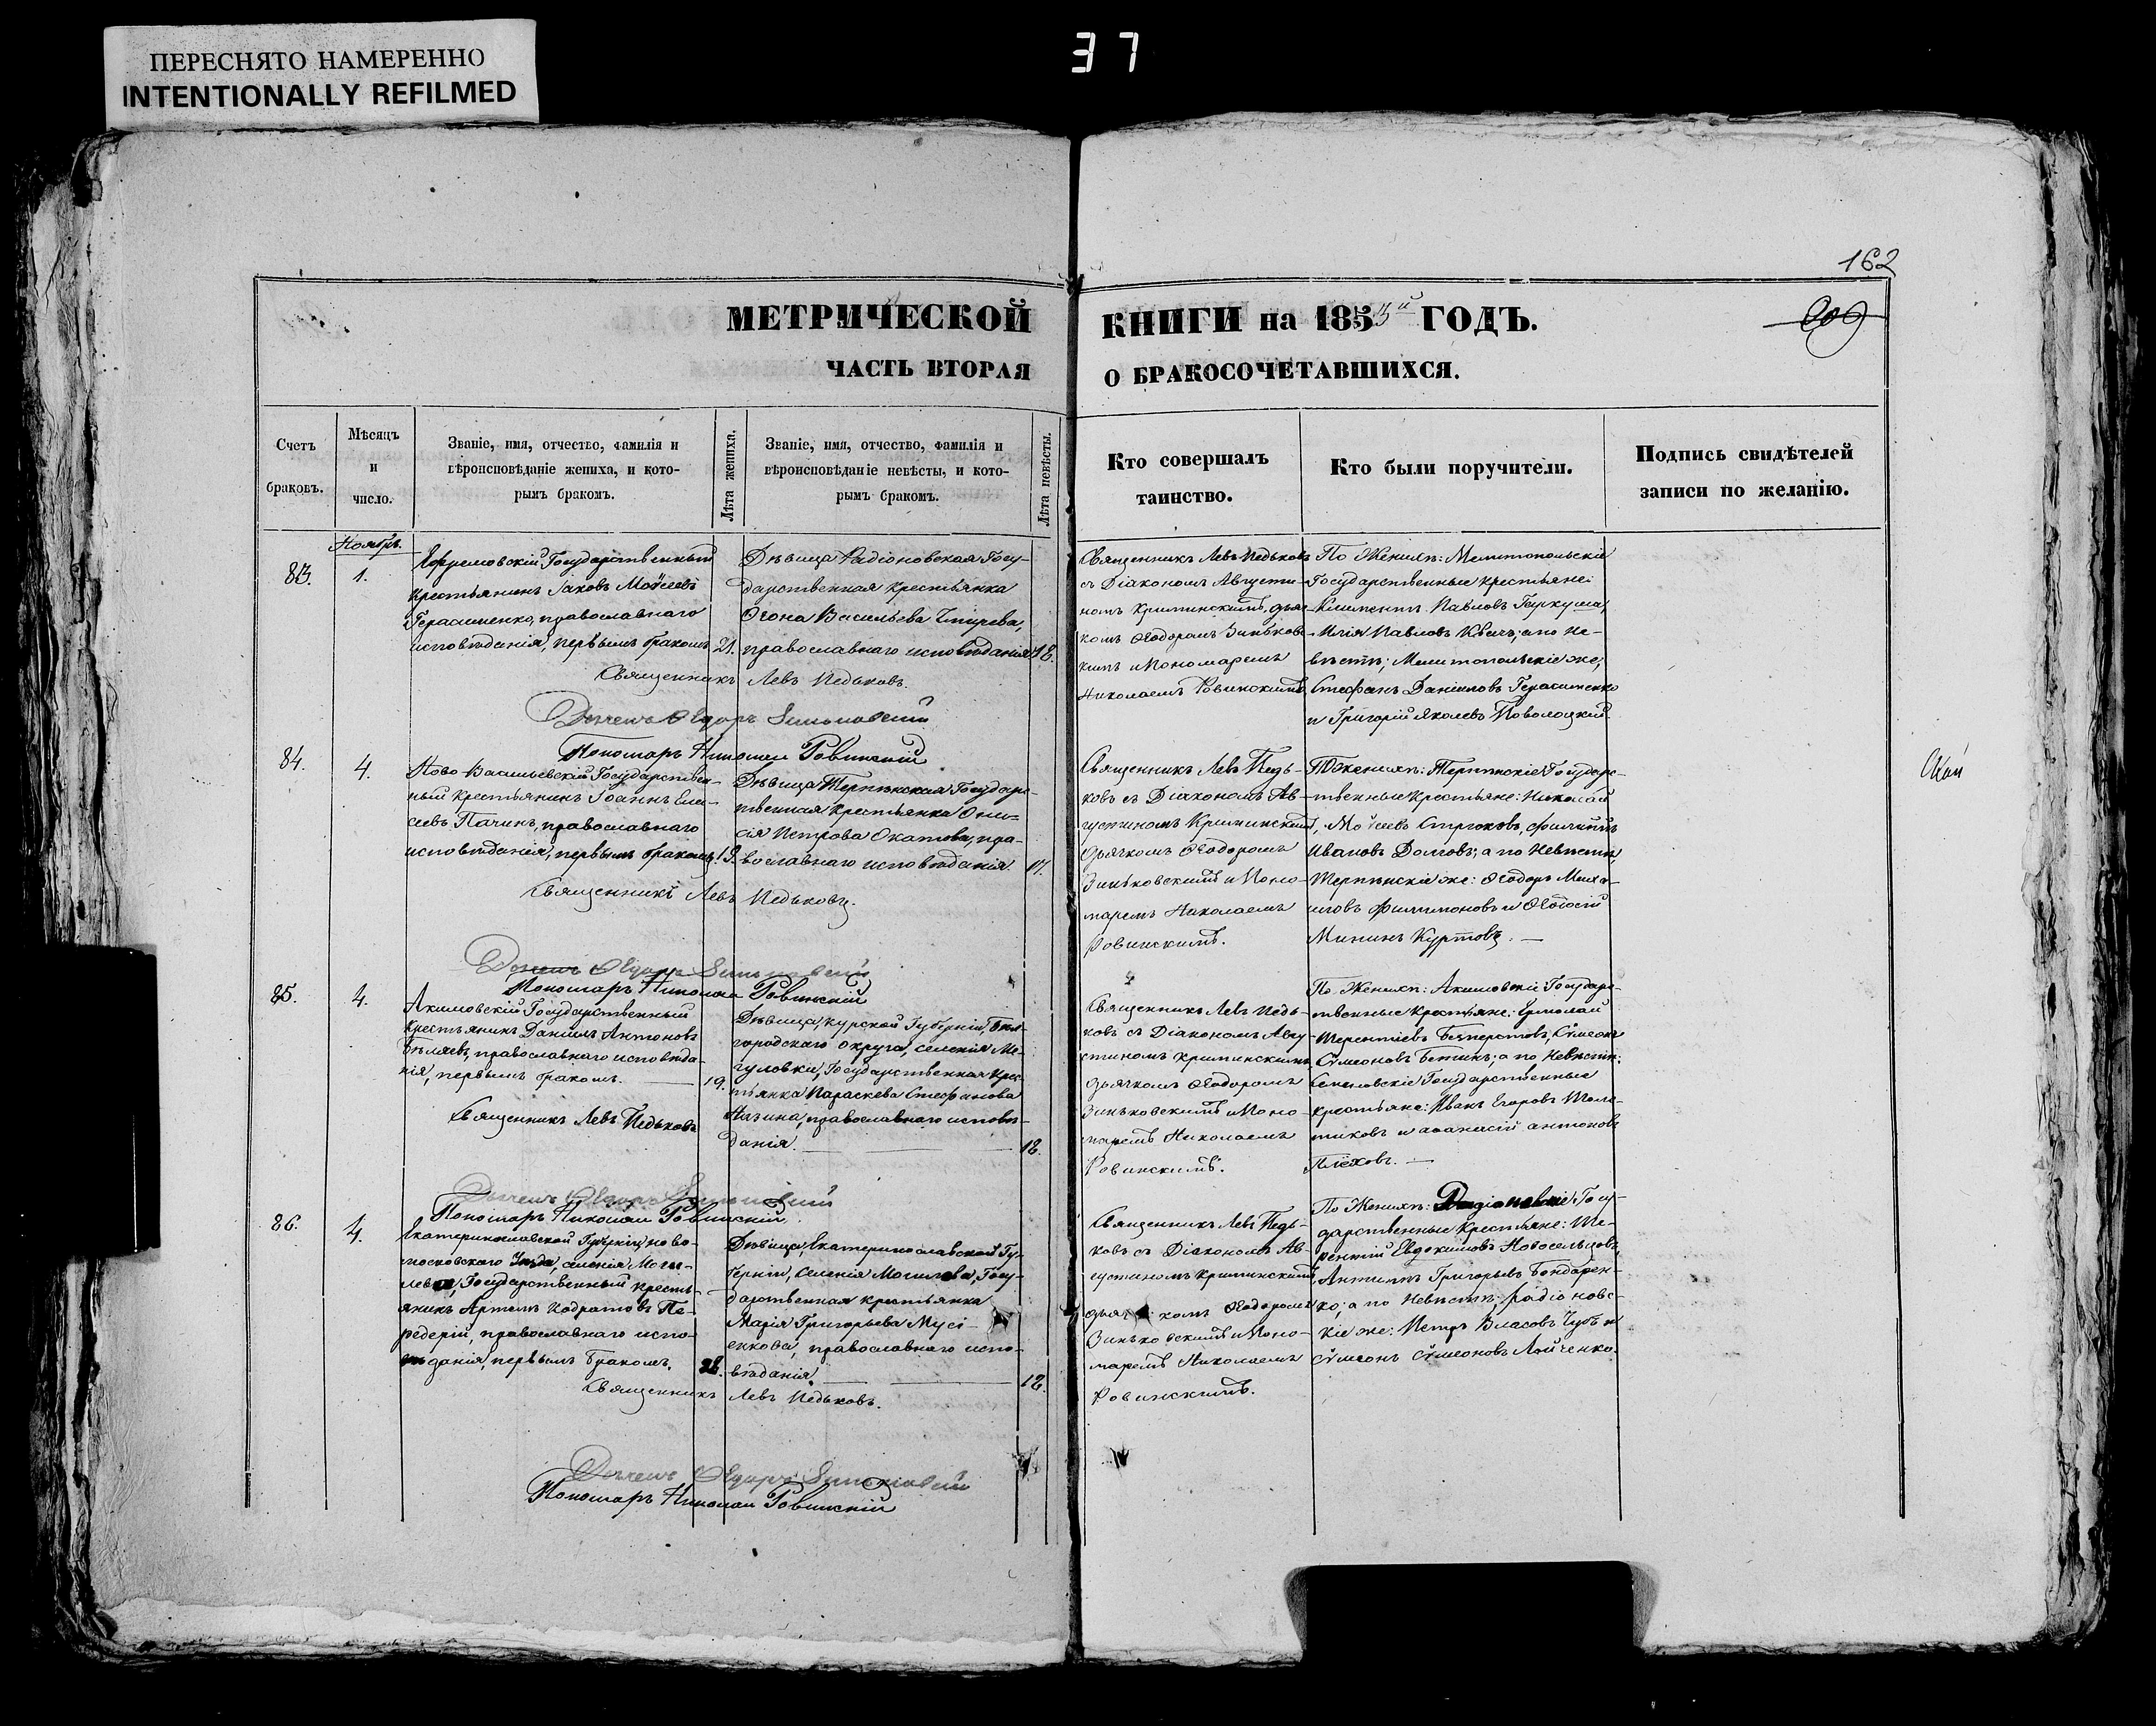 ПЕРЕСНЯТО НАМЕРЕННО
INTENTIONALLY REFILMED
37
162
МЕТРИЧЕСКОЙ КНИГИ на 1853й ГОДЪ.
ЧАСТЬ ВТОРАЯ О БРАКОСОЧЕТАВШИХСЯ.
Счетъ
браковъ.
Мѣсяцъ
и
число.
Званіе, имя, отчество, фамилія и
вѣроисповѣданіе жениха, и кото-
рымъ бракомъ.
Лѣта жениха.
Званіе, имя, отчество, фамилія и
вѣроисповѣданіе невѣсты, и кото-
рымъ бракомъ.
Лѣта невѣсты.
Кто совершалъ
таинство.
Кто были поручители.
Подпись свидѣтелей
записи по желанію.
Ноябрь.
83.
1.
Ефремовскій Государственный
крестьянинъ Іаковъ Моѵсеевъ
Герасименко, православнаго
исповѣданія, первымъ бракомъ
21.
Дѣвица Радіоновская Госу-
дарственная крестьянка
Васильева
православнаго исповѣданія
18.
Священникъ Левъ Педьковъ
съ Діакономъ Августи-
номъ Криминскимъ, дья-
комъ Ѳеодоромъ Зиньковс-
кимъ и Пономаремъ
Николаемъ Ровинскимъ
По Женихѣ: Мелитопольскіе
Государственные крестьяне:
Климентъ Павловъ
Илія Павловъ Квачъ; а по не-
вѣстѣ; Мелитопольскіе же;
Стефанъ Даніиловъ Герасименко
и Григорій Яковлевъ Поволоцкій.
Священникъ Левъ Педьковъ.
Дьячекъ Ѳедоръ Зиньковскій
Пономарь Николай Ровинскій
84.
4.
Ново Васильевскій Государствен-
ный крестьянинъ Іоаннъ Ели-
сеевъ Пачинъ, православнаго
исповѣданія, первымъ бракомъ
19.
Дѣвица Терпѣнская Государс-
твенная крестьянка Они-
сія Петрова Окатова, пра-
вославнаго исповѣданія.
17.
Священникъ Левъ Педь-
ковъ съ Діакономъ Ав-
густиномъ Криминскимъ
дьячкомъ Ѳеодоромъ
Зиньковскимъ и Поно-
маремъ Николаемъ
Ровинскимъ.
По Женихѣ: Терпѣнскіе Государс-
твенные крестьяне: Николай
Моѵсеевъ Строковъ, Филиппъ
Ивановъ Долговъ; а по Невѣстѣ
Терпѣнскіе же: Ѳеодоръ Миха-
иловъ Филимоновъ и Ѳеодосій
Мининъ Куртовъ. —
Священникъ Левъ Педьковъ.
Дьячекъ Ѳедоръ Зиньковскій
Пономарь Николай Ровинскій
85.
4.
Акимовскій Государственный
крестьянинъ Даніилъ Антоновъ
Бѣляевъ, православнаго исповѣда-
нія, первымъ бракомъ. —
19.
Дѣвица, Курской Губерніи, Бѣл-
городскаго округа, селенія Ме-
Государственная крес-
тьянка Параскева Стефанова
православнаго исповѣ-
данія. —
18.
Священникъ Левъ Педь-
ковъ съ Діакономъ Авгу-
стиномъ Криминскимъ
дьячкомъ Ѳеодоромъ
Зиньковскимъ и Поно-
маремъ Николаемъ
Ровинскимъ.
По Женихѣ: Акимовскіе Государс-
твенные крестьяне: Ермолай
Терентіевъ Безперстовъ, Сѵмеонъ
Сѵмеоновъ Бѣтинъ; а по Невѣстѣ:
Государственные
крестьяне: Иванъ Егоровъ Толс-
тиковъ и Аѳанасій Антоновъ
Плѣховъ. —
Священникъ Левъ Педьковъ
Дьячекъ Ѳедоръ Зиньковскій
Пономарь Николай Ровинскій
86.
4.
Екатеринославской Губерніи, ново-
московскаго Уѣзда, селенія Моги-
лева, Государственный кресть-
янинъ Артемъ Кодратовъ Пе-
редерій, православнаго испо-
вѣданія, первымъ бракомъ.
Дѣвица, Екатеринославской Гу-
берніи, селенія Могилева, Госу-
дарственная крестьянка
Марія Григорьева Мусі-
енкова, православнаго испо-
вѣданія. —
18.
Священникъ Левъ Педь-
ковъ съ Діакономъ Ав-
густиномъ Криминскимъ
дьячкомъ Ѳеодоромъ
Зиньковскимъ и Поно-
маремъ Николаемъ
Ровинскимъ.
По Женихѣ: Радіоновскіе Госу-
дарственные крестьяне: Те-
рентій Евдокимовъ Новосельцовъ,
Антипъ Григорьевъ Бондарен-
ко; а по Невѣстѣ; Радіоновс-
кіе же: Петръ Власовъ Чубъ и
Сѵмеонъ Сѵмеоновъ Лойченко.
Священникъ Левъ Педьковъ.
Дьячекъ Ѳедоръ Зиньковскій
Пономарь Николай Ровинскій